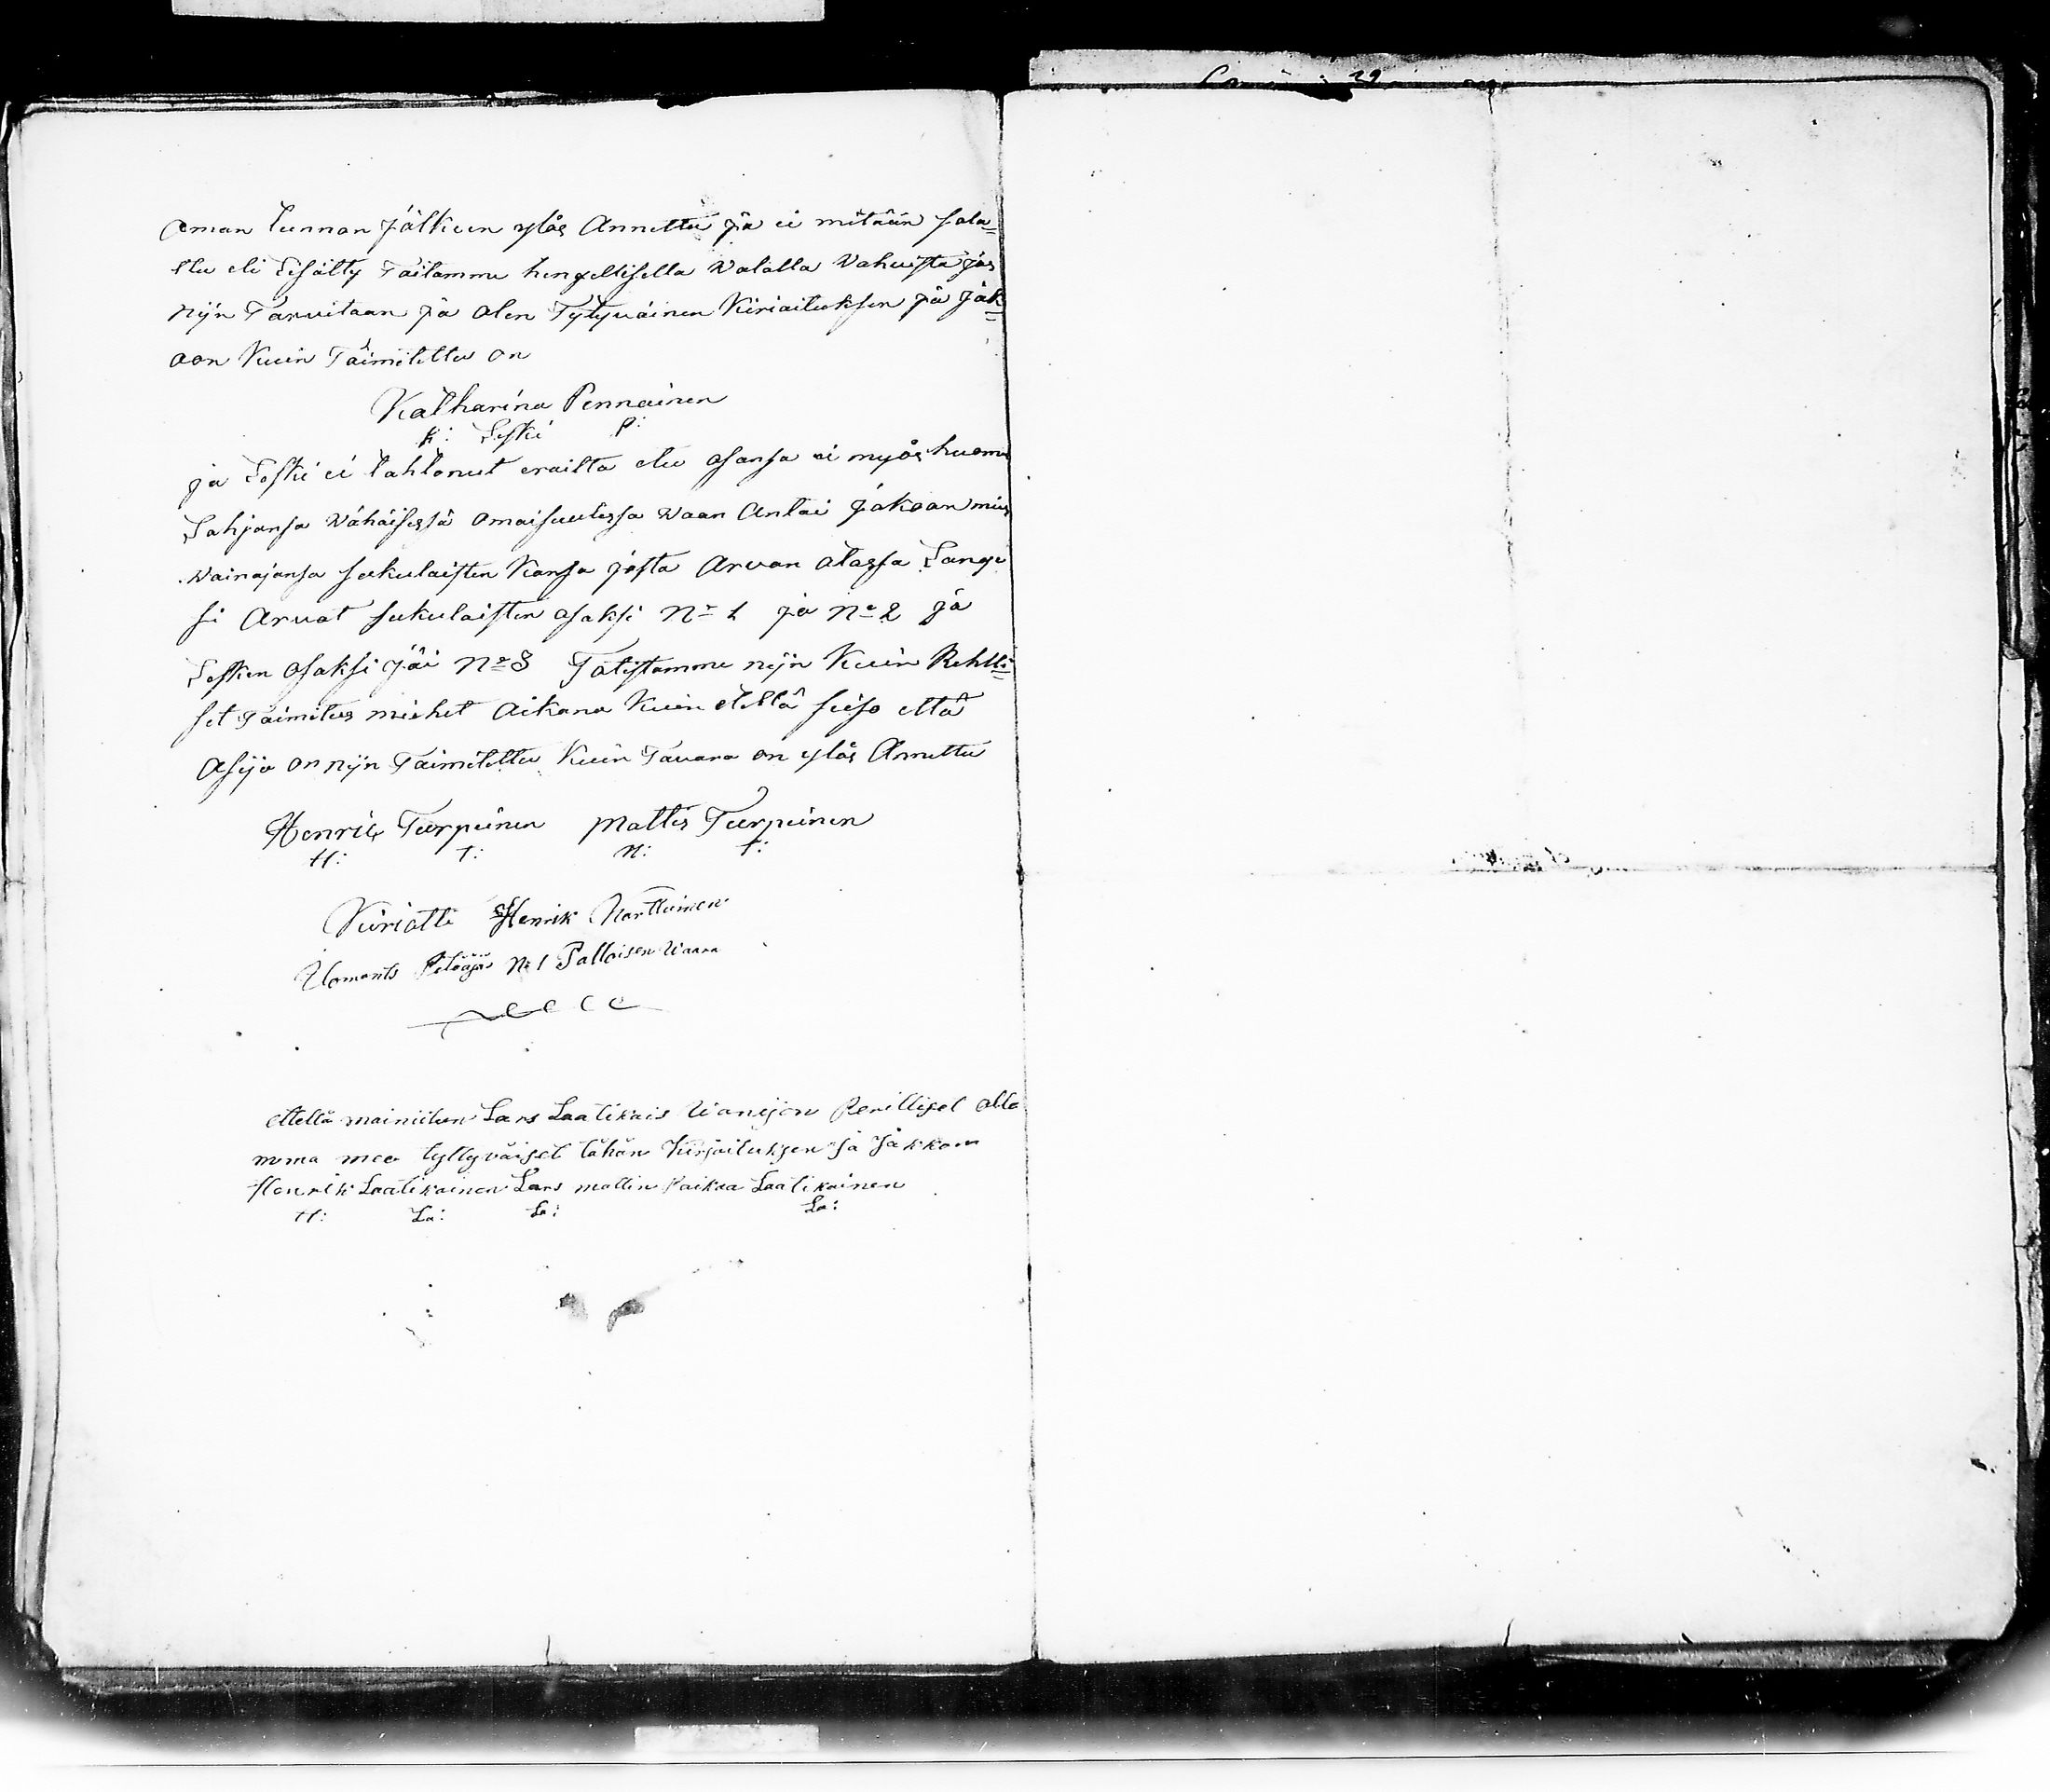 oman tunnan jälkeen ylös Annettu ja ei mitään sala=
ttu eli Lisätty Taitamme hengellisellä Walalla Wahwista jos
nijn Tarvitaan ja olen Tytyväinen Kiriaituksen ja jak=
oon Kuin Toimitettu on
Katharina Pennainen
K: Leski P:
ja Leski ei tahtonut eroitta etu osansa ei myös huomen
Lahjansa Wähäisessä omaisuudessa Waan Antai jakoan mies
Wainajansa sukulaisten Kansa josta Arvan otossa Lange
si Arvat sukulaisten osaksi No 1 ja No 2 ja
Lesken osaksi jäi No 3 Todistamme nijn Kuin Rehtli=
set Toimitus miehet Aikana Kuin edellä seiso että
Asija on nijn Toimitettu Kuin Tavara on ylös Annettu
Henric Turpeinen Mattis Turpeinen
H: T: M: T:
Kiriotti Henrik Narttuinen
Ilomants Pitäjä No 1 Palloisen Waara
ettellä mainittun Lars Laatikais Vianijan Perilliset olle
mma mee tyttyväiset tähän Kirjoituksen ja Jakkoon
Henrik Laatikainen Lars mattin Poikaa Laatikainen
H: La: La: La: